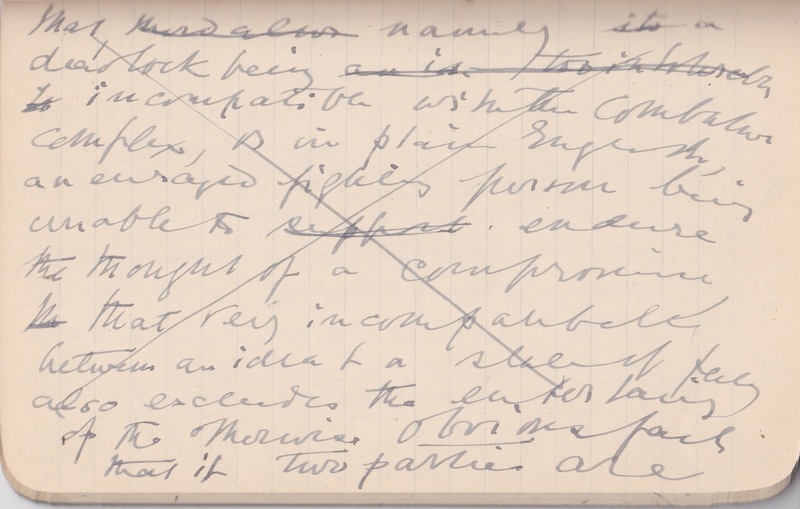 that namely a
deadlock being
incompatible with the combative
complex, is in plain English,
an enraged fighting person being
unable to support. endure
the thought of a compromise
that very incompatibility
between an idea & a state of feeling
also excludes the entertaining
of the otherwise obvious fact
that if two parties are